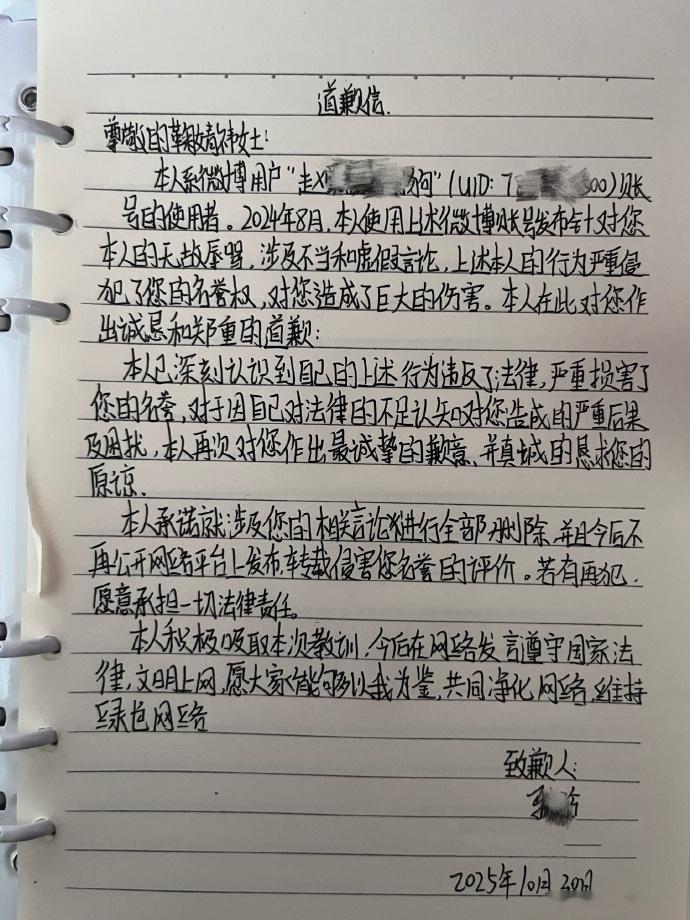 道歉信.
尊敬的鞠婧祎女士:
本人系微博用户"赵 狗"(UID: 7 500)账
号的使用者。2024年8月,本人使用上述微博账号发布针对您
本人的无故辱骂,涉及不当和虚假言论,上述本人的行为严重侵
犯了您的名誉权,对您造成了巨大的伤害。本人在此对您作
出诚恳和郑重的道歉:
本人已深刻认识到自己的上述行为违反了法律,严重损害了
您的名誉,对于因自己对法律的不足认知对您造成的严重后果
及困扰,本人再次对您作出最诚挚的歉意、并真诚的恳求您的
原谅.
本人承诺就涉及您的相关言论进行全部删除,并且今后不
再公开网络平台上发布、转载侵害您名誉的评价。若有再犯,
愿意承担一切法律责任。
本人积极吸取本次教训,今后在网络发言遵守国家法
律,文明上网,愿大家能够以我为鉴,共同净化网络,维持
绿色网络
致歉人:
2025年10月